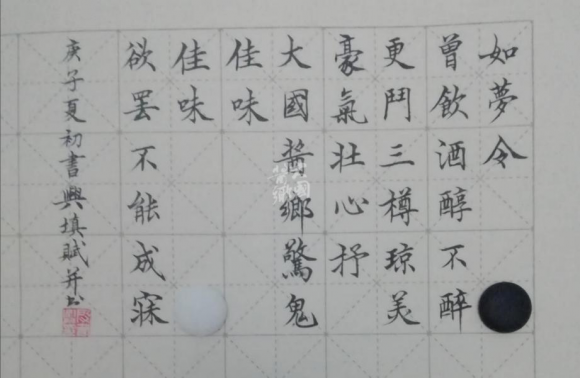 如夢令
曾飲酒醇不醉
更鬥三樽琼美
豪氣壮心抒
大國醬鄉驚鬼
佳味
佳味
欲罢不能成寐
庚子夏初書興填賦并书